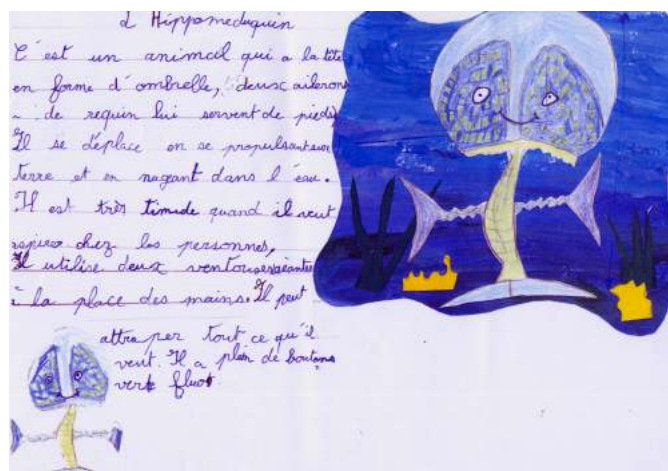 L'Hippomeduquin
C'est un animal qui a la tête
en forme d'ombrelle, deux ailerons
de requin lui servent de pieds
Il se déplace en se propulsant sur
terre et en nageant dans l'eau.
Il est très timide quand il veut
chez les personnes,
Il utilise deux ventouses géantes
à la place des mains. Il peut
attraper tout ce qu'il
veut. Il a plein de boutons
verts fluo